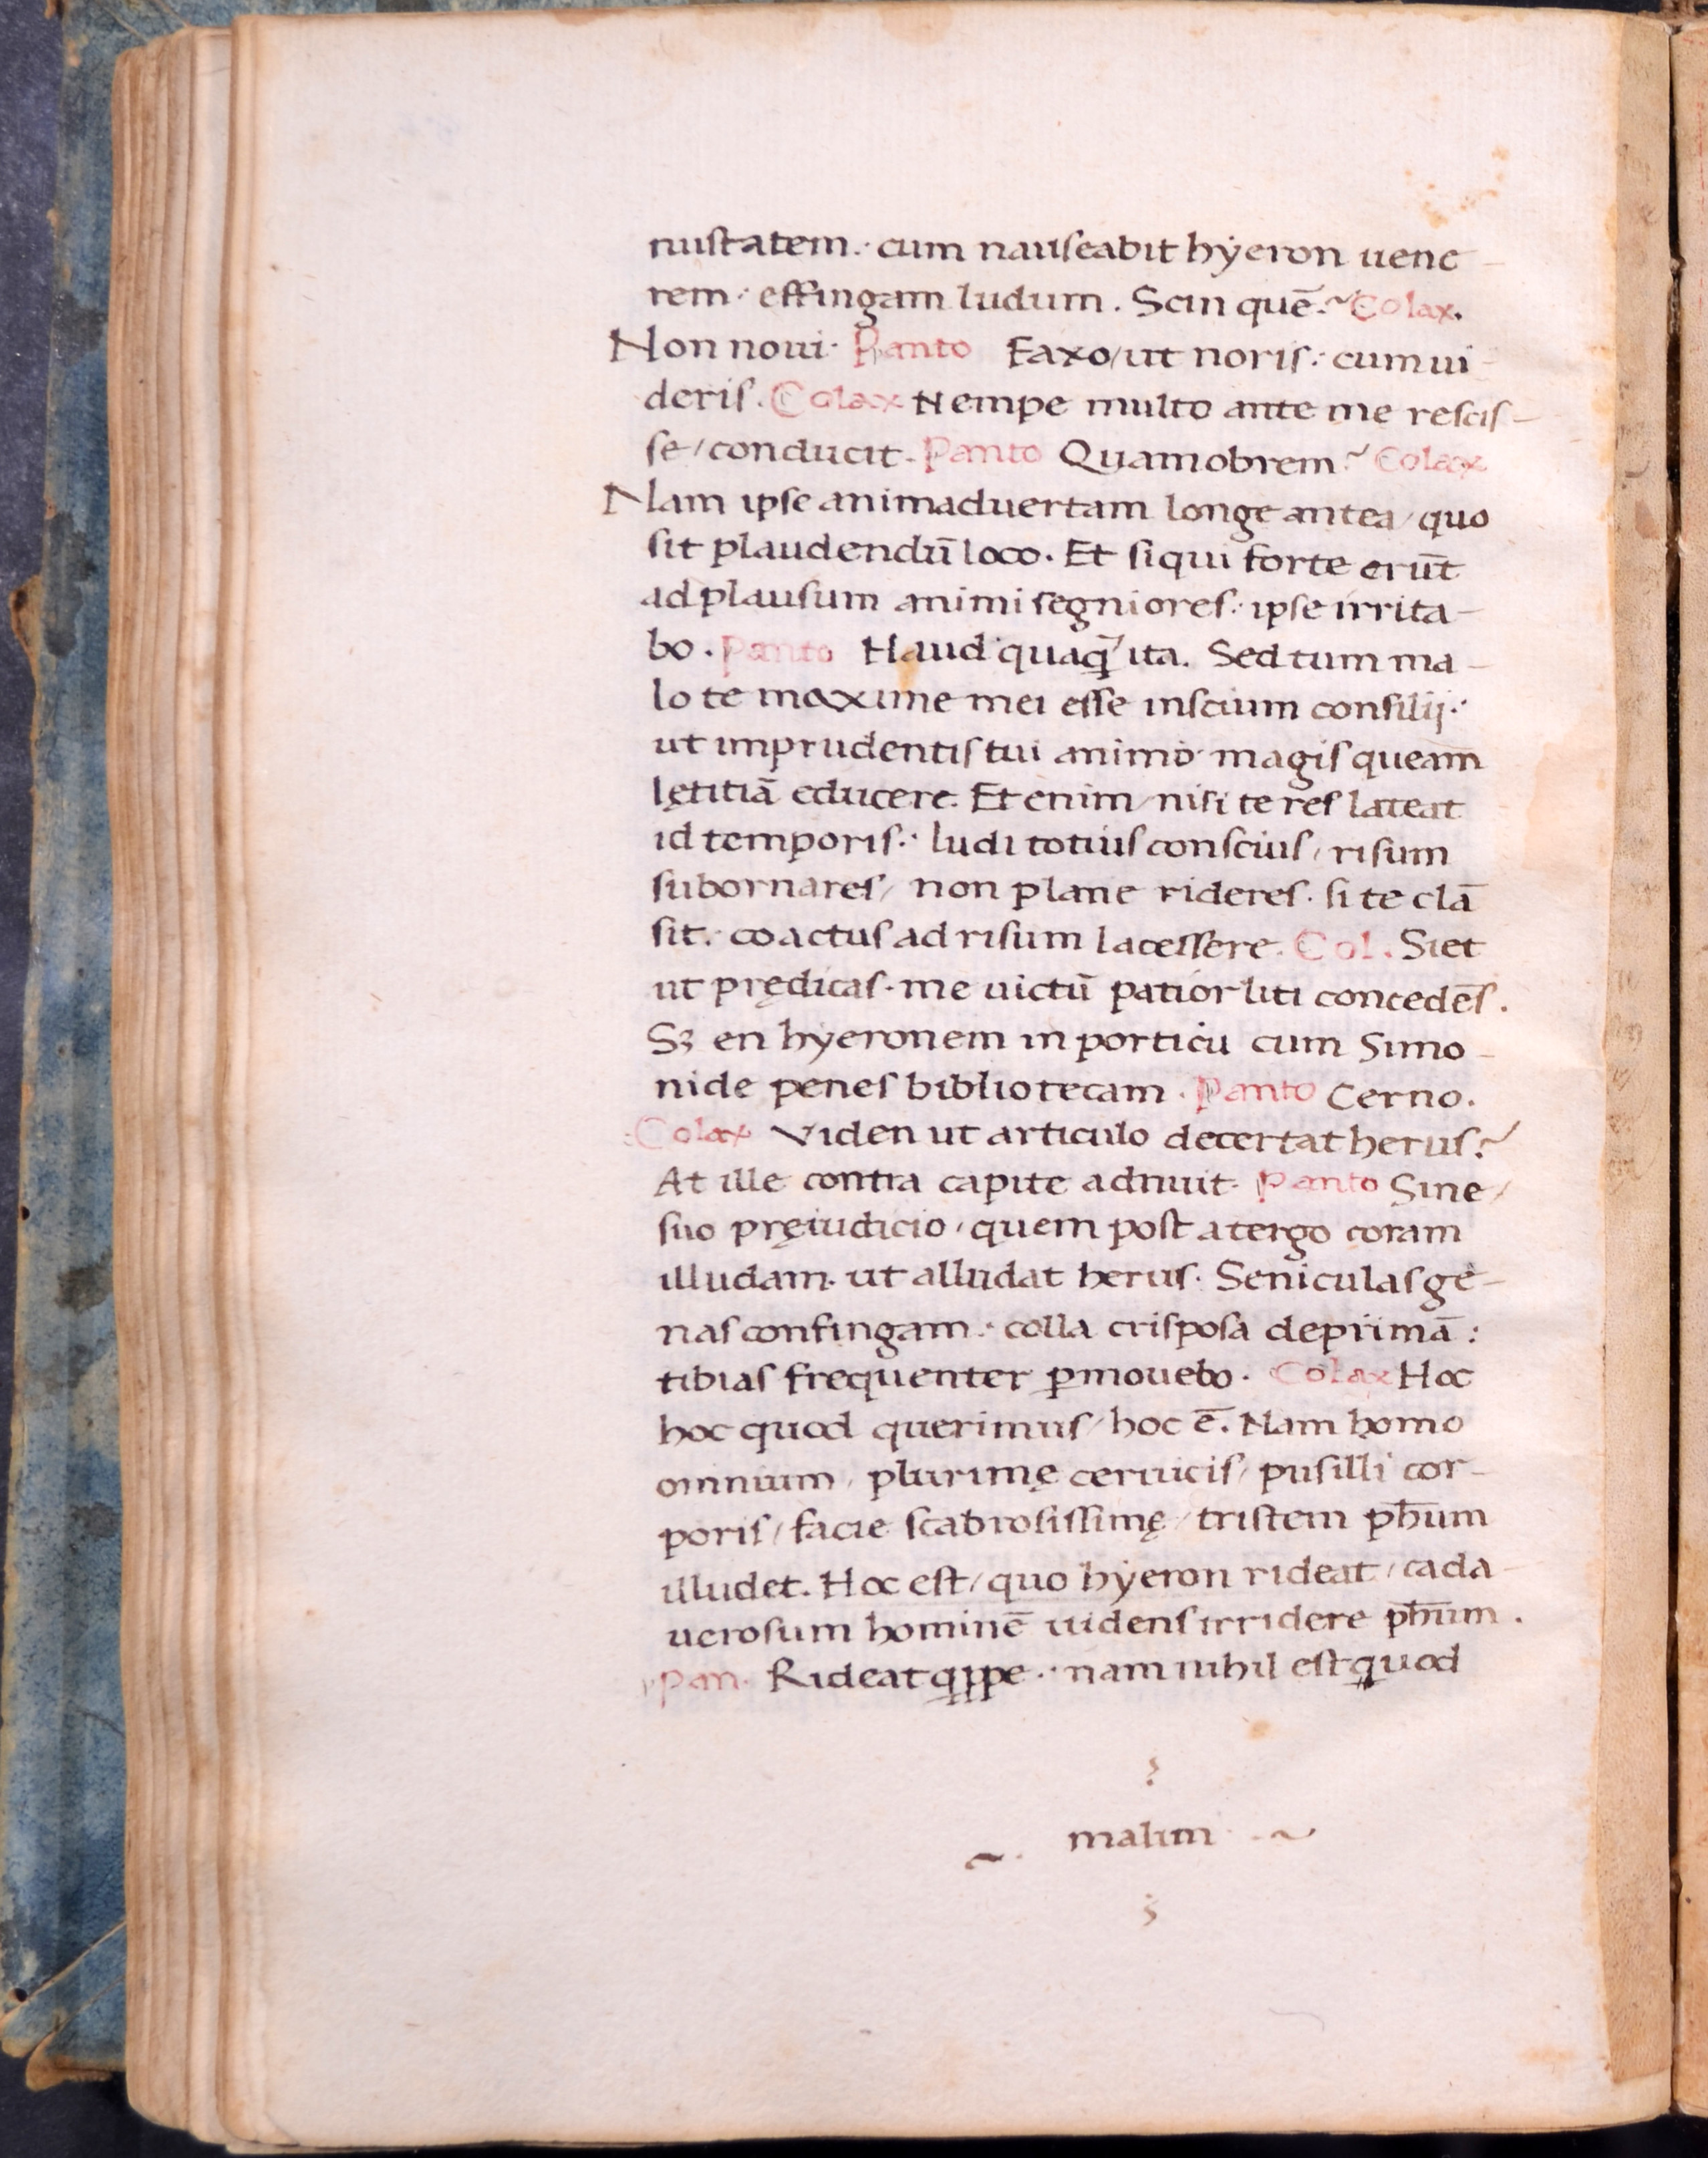 nustatem: cum nauseabit hyeron uene-
rem: effingam ludum. Scin quē? Colax.
Non noui. Panto Faxo/ut noris: cum ui-
deris. Colax Nempe multo ante me rescis-
se/conducit. Panto Quamobrem? Colax
Nam ipse animaduertam longe antea/quo
sit plaudendū loco. Et siqui forte erūt
ad plausum animi segniores: ipse irrita-
bo. Panto Haud quaq̄ ita. Sed tum ma-
lo te maxime mei esse inscium consilij:
ut imprudentis tui animo magis queam
lętitiā educere. Et enim/nisi te res lateat
id temporis: ludi totius conscius/risum
subornares/non plane rideres. si te clā
sit: coactus ad risum lacessere. Col. Siet
ut prędicas. me uictū patior tibi concedēs.
Sꝫ en hyeronem in porticu cum Simo-
nide penes bibliotecam. Panto Cerno.
Colax Viden ut articulo decertat herus?
At ille contra capite adnuit. Panto Sine/
suo pręiudicio/quem post a tergo coram
illudam. ut alludat herus. Seniculas ge-
nas confingam: colla crisposa deprimā:
tibias frequenter ꝑmouebo. Colax Hoc
hoc quod querimus/hoc ē. Nam homo
omnium/plurimę ceruicis/pusilli cor-
poris/facie scabrosissimę/tristem ph̄um
illudet. Hoc est/quo hyeron rideat/cada-
uerosum hominē uidens irridere ph̄um.
Pan. Rideat qppe: nam nihil est quod
malim